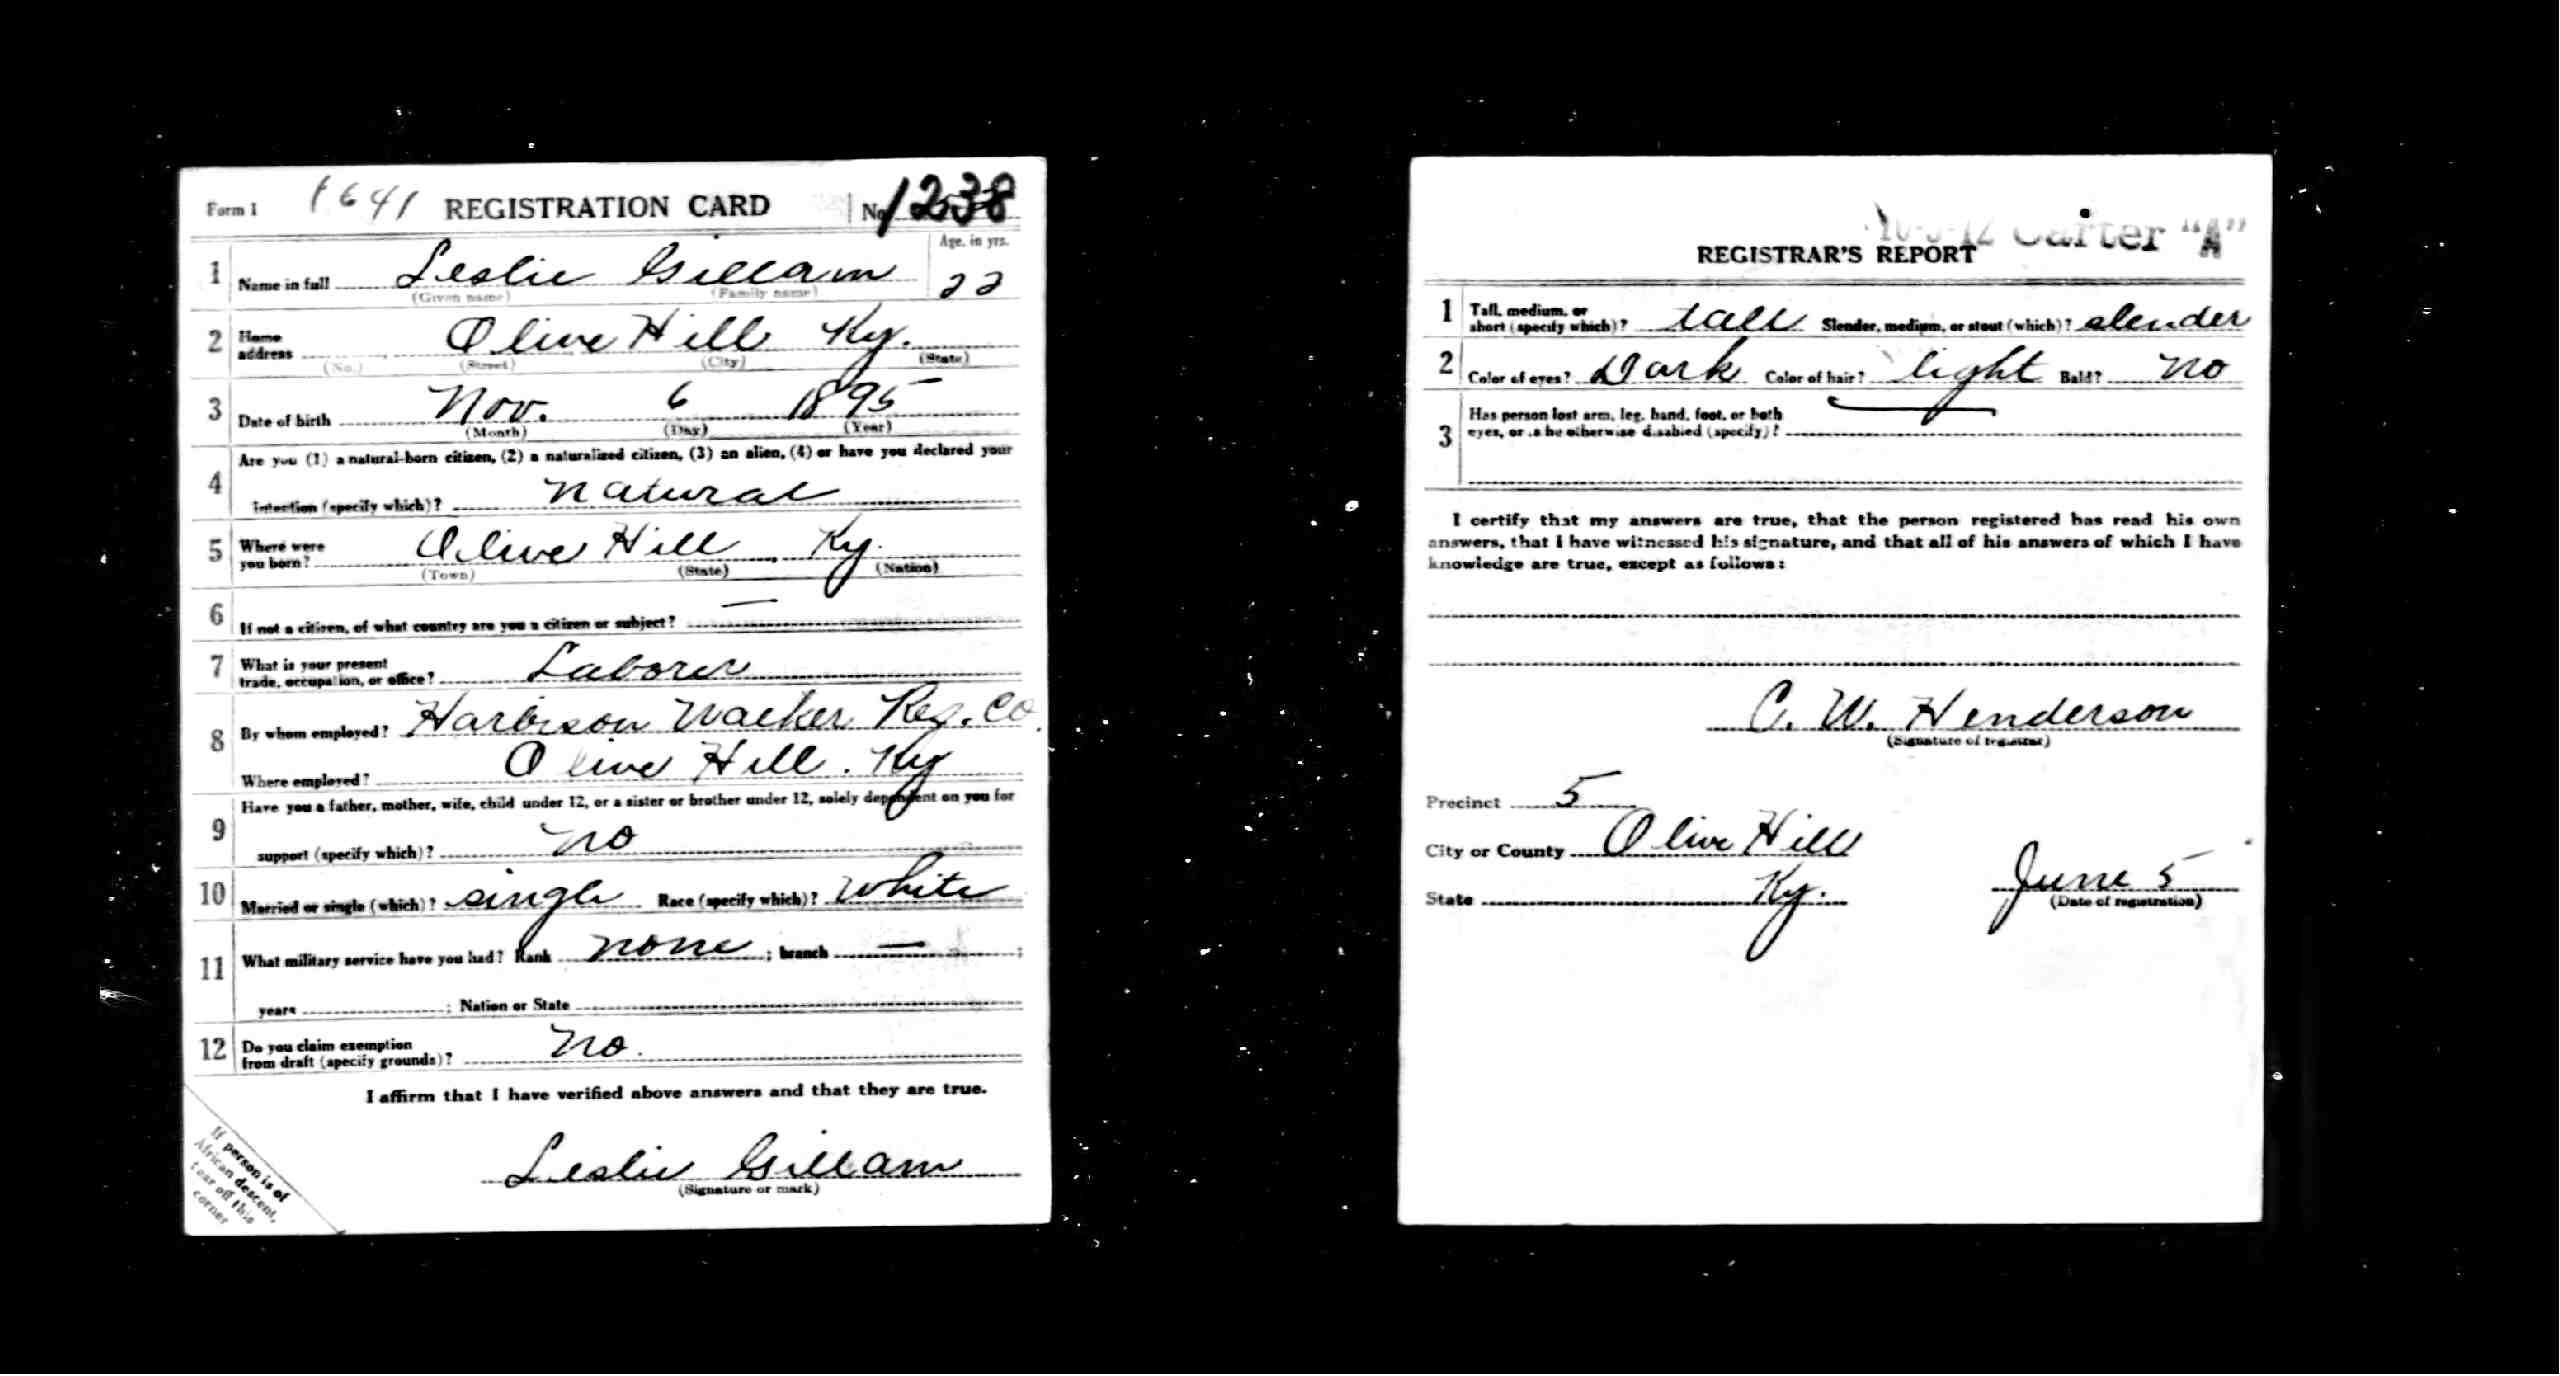 Form 1 1641 REGISTRATION CARD No. 1238
Age, in yrs.
1 Name in full Leslie Gillam 22
(Given name) (Family name)
2 Home address Olive Hill Ky.
(No.) (Street) (City) (State)
3 Date of birth Nov. 6 1895
(Month) (Day) (Year)
4 Are you (1) a natural-born citizen, (2) a naturalized citizen, (3) an alien, (4) or have you declared your
intention (specify which)? natural
5 Where were you born? Olive Hill, Ky.
(Town) (State) (Nation)
6 If not a citizen, of what country are you a citizen or subject? —
7 What is your present
trade, occupation, or office? Laborer
8 By whom employed? Harbison Walker Ref. Co.
Where employed? Olive Hill. Ky
9 Have you a father, mother, wife, child under 12, or a sister or brother under 12, solely dependent on you for
support (specify which)? no
10 Married or single (which)? single Race (specify which)? White
11 What military service have you had? Rank none ; branch — ;
years ; Nation or State
12 Do you claim exemption
from draft (specify grounds)? No.
I affirm that I have verified above answers and that they are true.
Leslie Gillam
(Signature or mark)
If person is of
African descent,
tear off this
corner
Carter "A"
REGISTRAR'S REPORT
1 Tall, medium, or
short (specify which)? tall Slender, medium, or stout (which)? slender
2 Color of eyes? Dark Color of hair? light Bald? No
3 Has person lost arm, leg, hand, foot, or both
eyes, or is he otherwise disabled (specify)?
I certify that my answers are true, that the person registered has read his own
answers, that I have witnessed his signature, and that all of his answers of which I have
knowledge are true, except as follows:
C. W. Henderson
(Signature of registrar)
Precinct 5
City or County Olive Hill
State Ky. June 5
(Date of registration)